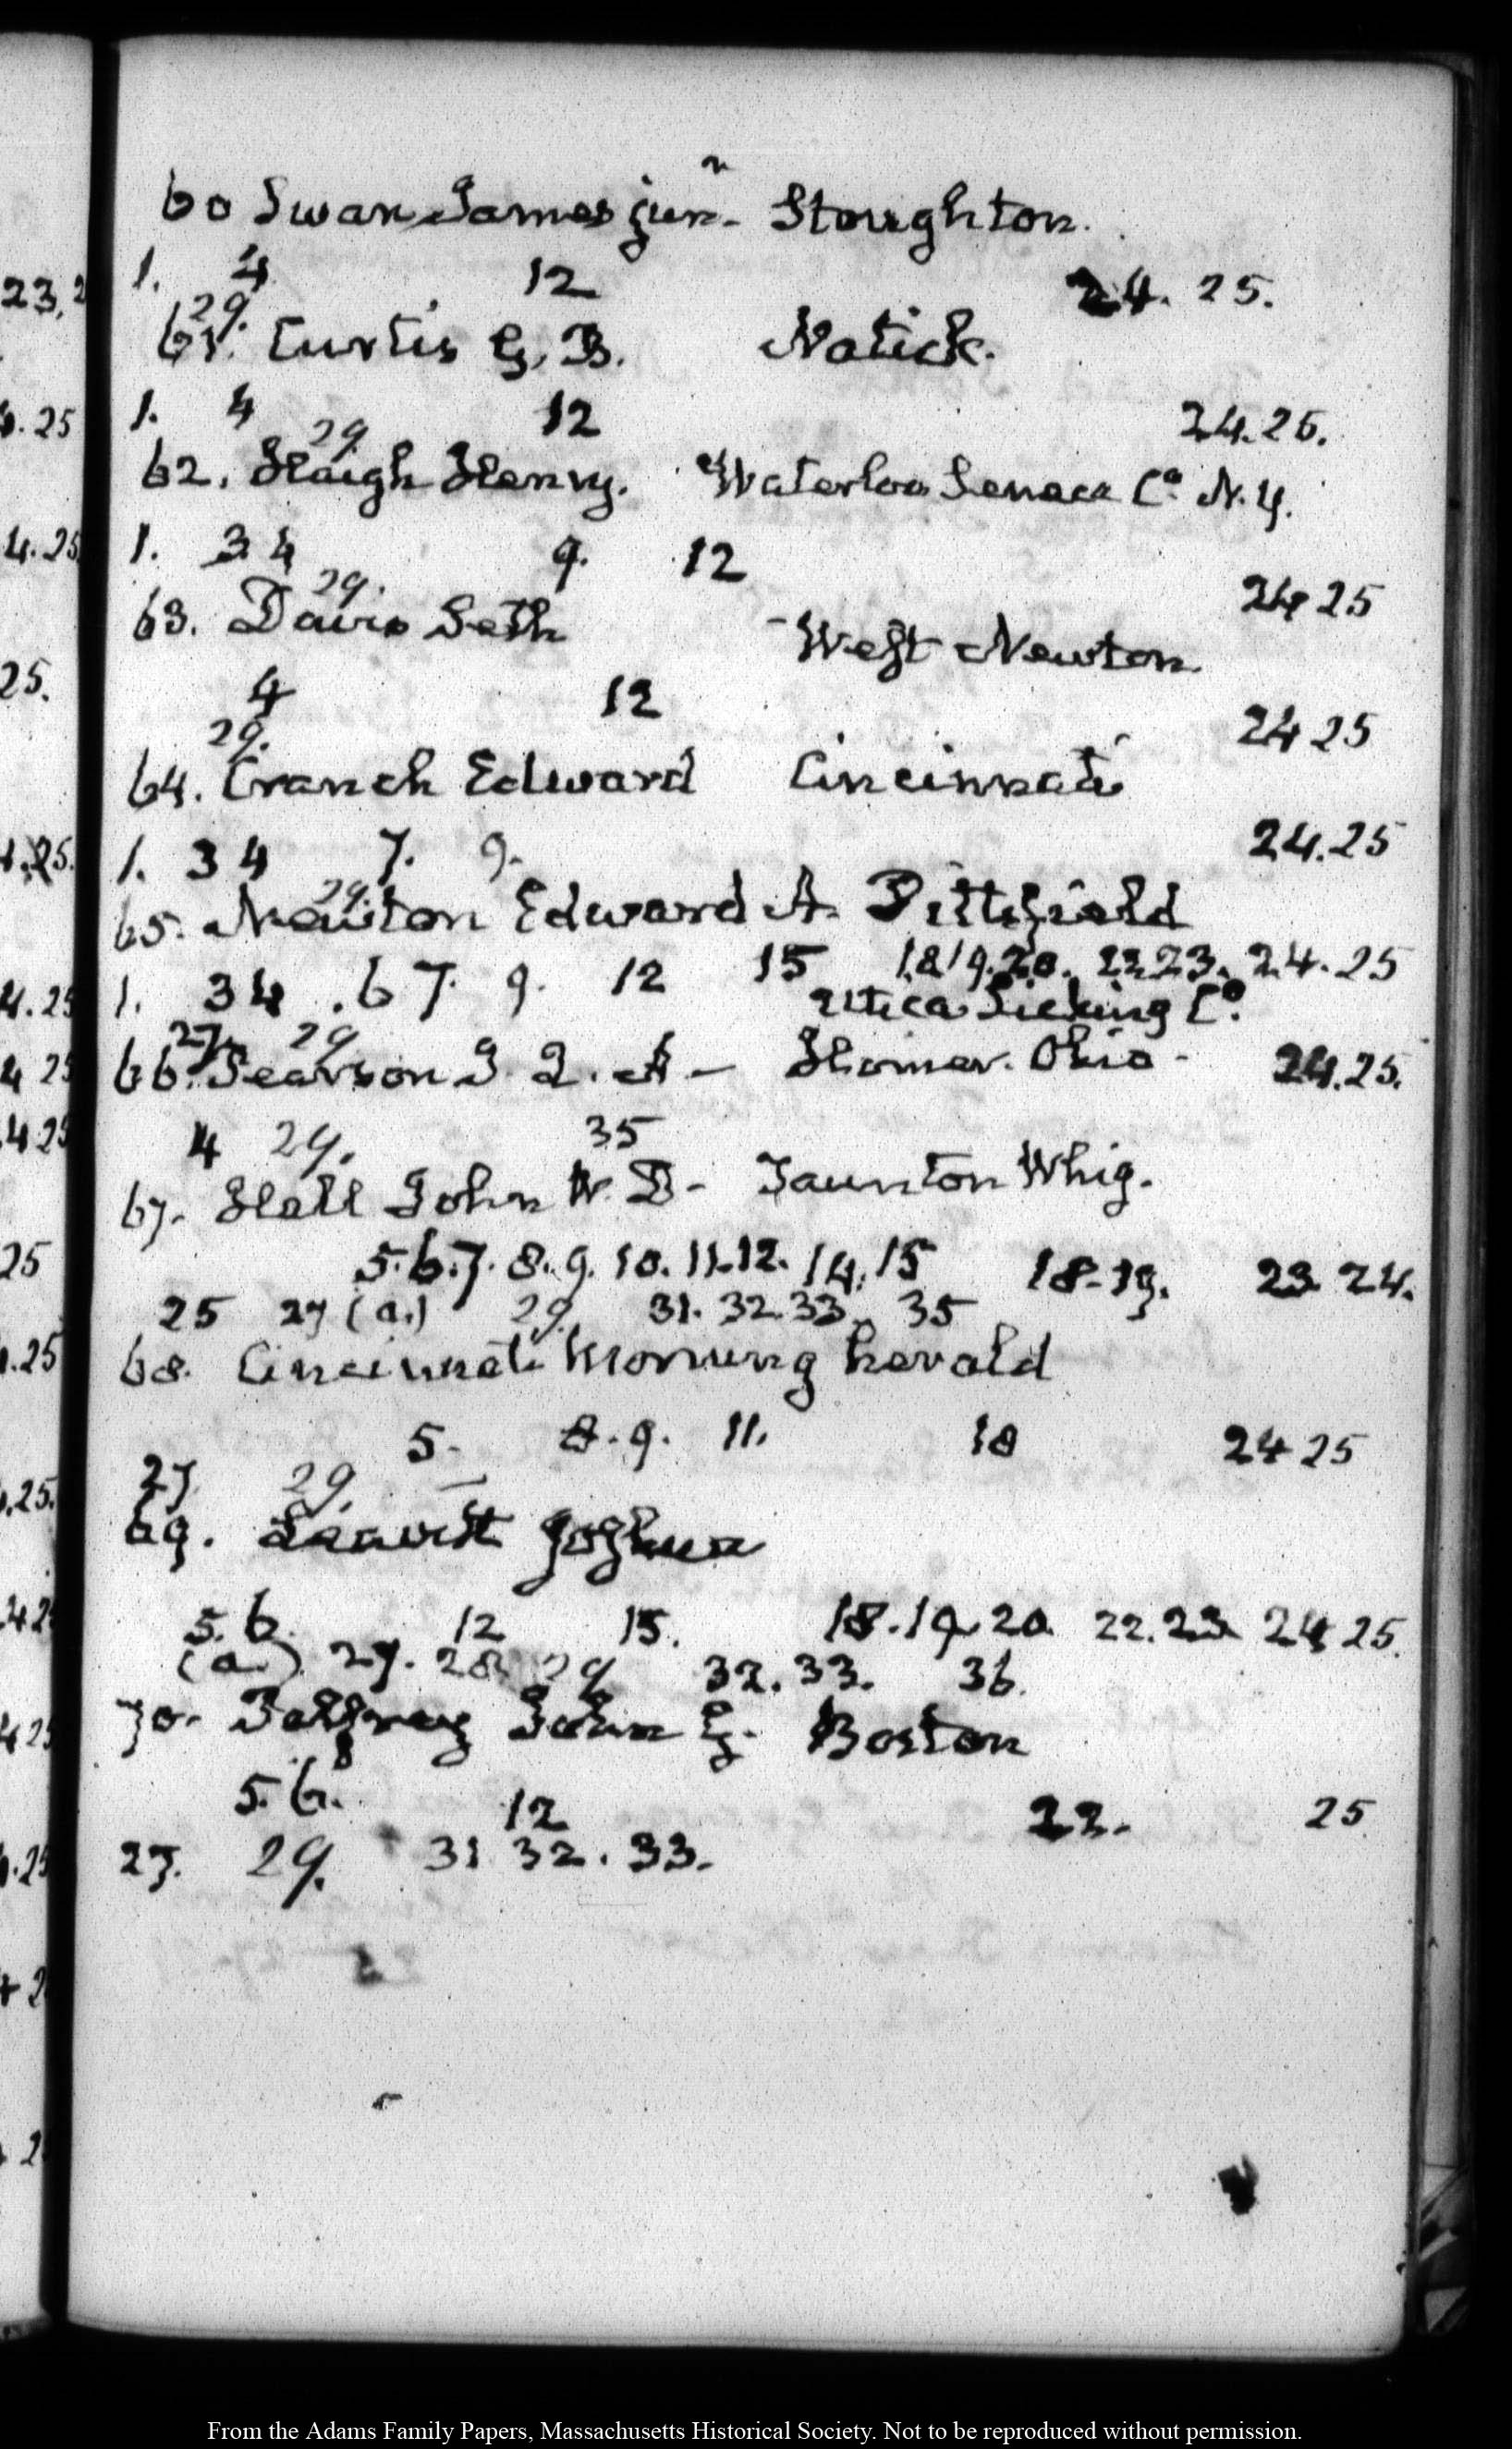 60 Swan James junr. Stoughton.
1. 4 12 24. 25.
29.
61. Curtis G. B. Natick.
1. 4 12 24.25.
29.
62. Haigh Henry. Waterloo Seneca Co. N.Y.
1. 3 4 9. 12 24 25
29.
63. Davis Seth West Newton
4 12 24 25
29.
64. Cranch Edward Cincinnati
1. 3 4 7. 9. 24.25
29.
65. Newton Edward A. Pittsfield
1. 3 4 . 6 7. 9. 12 15 18 19. 20. 22 23. 24. 25
27. 29 Utica Licking Co.
66. Pearson J. Q. A - Homer. Ohio - 24.25.
4 29. 35
67. Hall John W. D - Taunton Whig.
5. 6. 7. 8. 9. 10. 11. 12. 14. 15 18-19. 23 24.
25 27 (a.) 29. 31. 32. 33. 35
68. Cincinnati Morning herald
5. 8. 9. 11. 18 24 25
27 29.
69. Leavitt Joshua
5. 6. 12 15. 18. 19. 20. 22. 23 24 25.
(a.) 27. 28 29 32. 33. 36.
70. Palfrey John G. Boston
5. 6. 12 22. 25
27. 29. 31 32. 33.
From the Adams Family Papers, Massachusetts Historical Society. Not to be reproduced without permission.